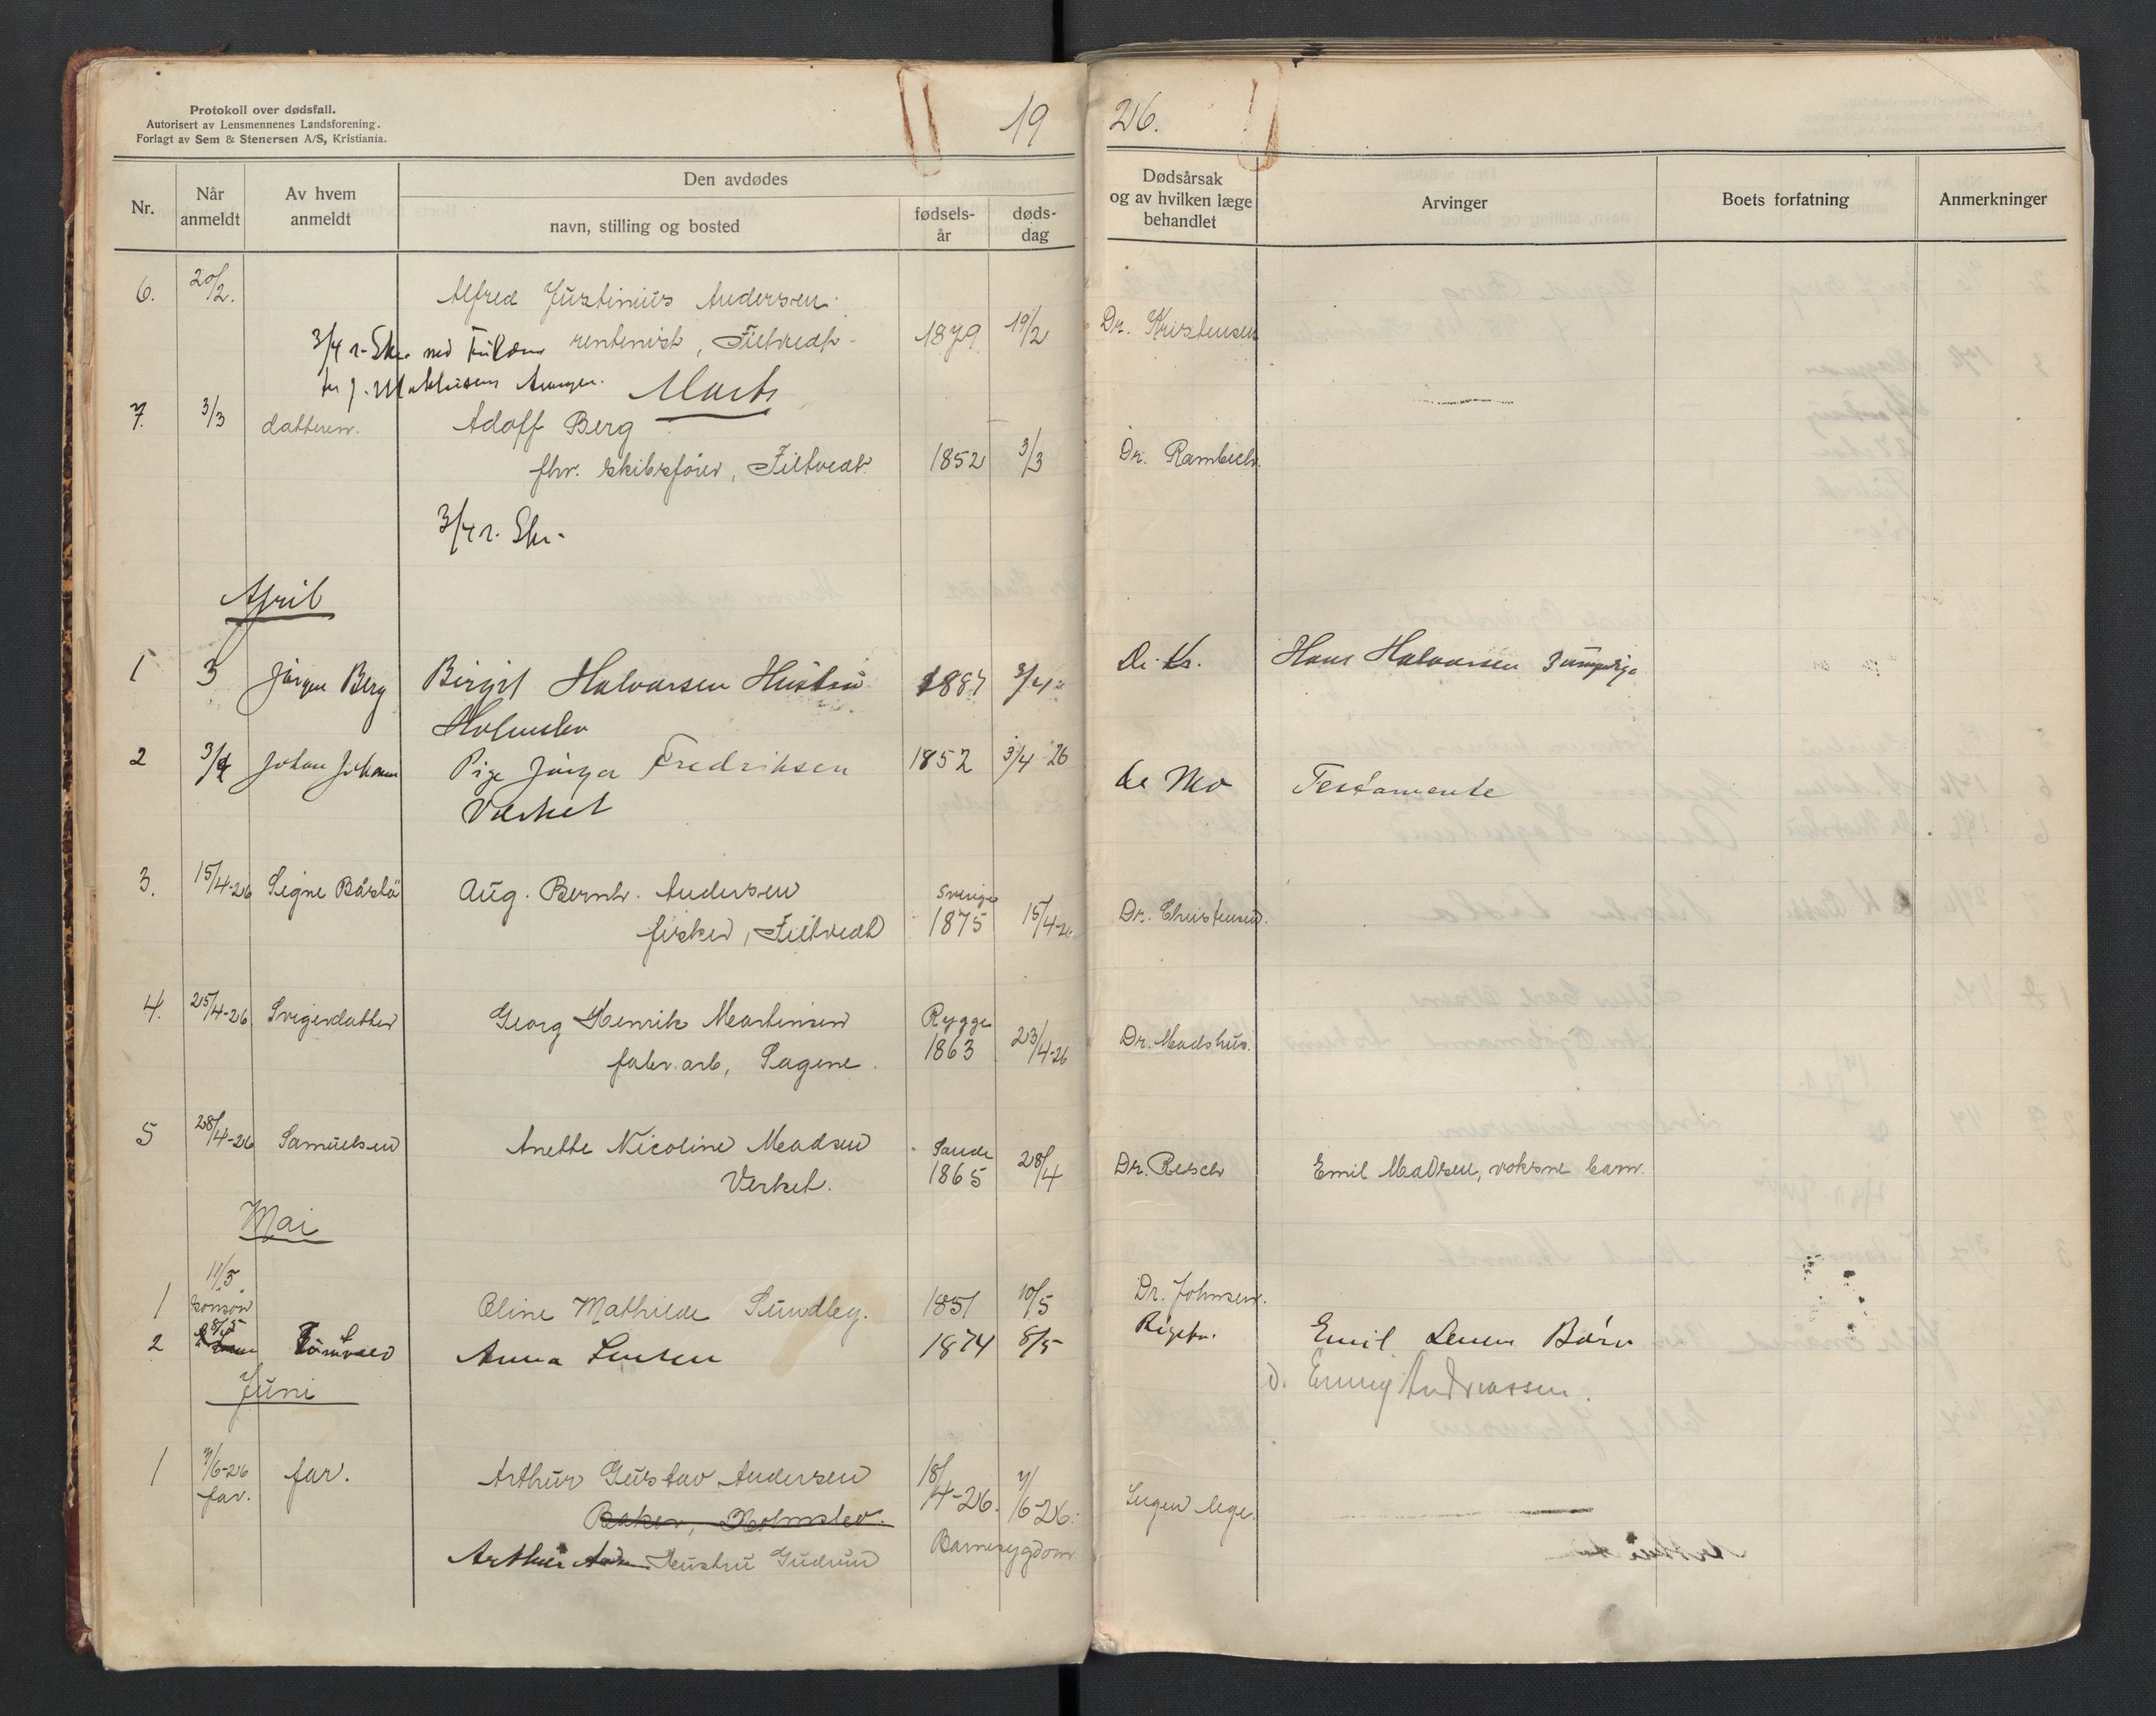 Protokoll over dødsfall.
Autorisert av Lensmennenes Landsforening.
Forlagt av Sem & Stenersen A/S, Kristiania.
19 26.
Nr.
Når anmeldt
Av hvem anmeldt
Den avdødes
navn, stilling og bosted
fødsels-år
døds-dag
Dødsårsak og av hvilken læge behandlet
Arvinger
Boets forfatning
Anmerkninger
6. 20/2. Alfred Justinius Andersen
rentenist, Filtvedt 1879 19/2 Dr. Kristensen
3/4 r. Skr.
Marts
7. 3/3 datteren. Adolf Berg
fhv. skibsfører, Filtvedt 1852 3/3 Dr.
3/4 r. Skr.
April
1 3 Jørgen Berg Birgit Halvorsen Hustru 1887 3/4 Dr. Kr. Hans Halvorsen
Holmsbo
2 3/4 Johan Pige Fredriksen 1852 3/4 26 Testamente
Verket
3. 15/4-26 Signe Båstø Aug. Bernh. Andersen Sverige
fisker, Filtvedt 1875 15/4-26 Dr. Christensen.
4. 25/4-26 Svigerdatter Georg Henrik Martinsen Rygge
fabr. arb, Sagene. 1863 23/4-26 Dr. Madshus.
5 28/4-26 Samuelsen Anette Nicoline Madsen Sande
Verket. 1865 28/4 Dr. Resch Emil Madsen, voksne barn.
Mai
1 11/5 Oline Mathilde Sundby. 1851 10/5 Dr. Johnsen.
2 8/5 Anna 1874 8/5 Emil Børn
d. Enny Andreassen.
Juni
1 7/6-26 far. far. Arthur Gustav Andersen 18/4-26. 7/6-26. Ingen lege.
Baker, Holmsbo.
Arthur hustru Gudrun Barnesygdom